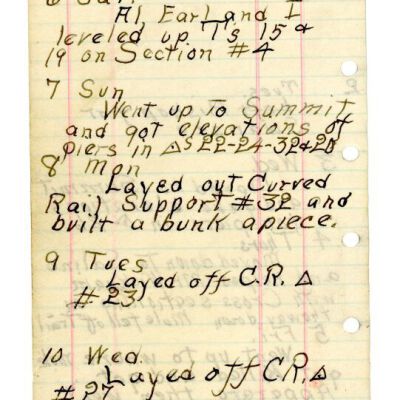 6 Sat.
Al, Earl and I
leveled up T's 15 &
19 on Section #4
7 Sun
Went up to Summit
and got elevations of
piers in △s 22-24-32&20
8 Mon
Layed out Curved
Rail Support #32 and
built a bunk apiece.
9 Tues
Layed off C.R. △
#23
10 Wed.
Layed off C.R. △
#27